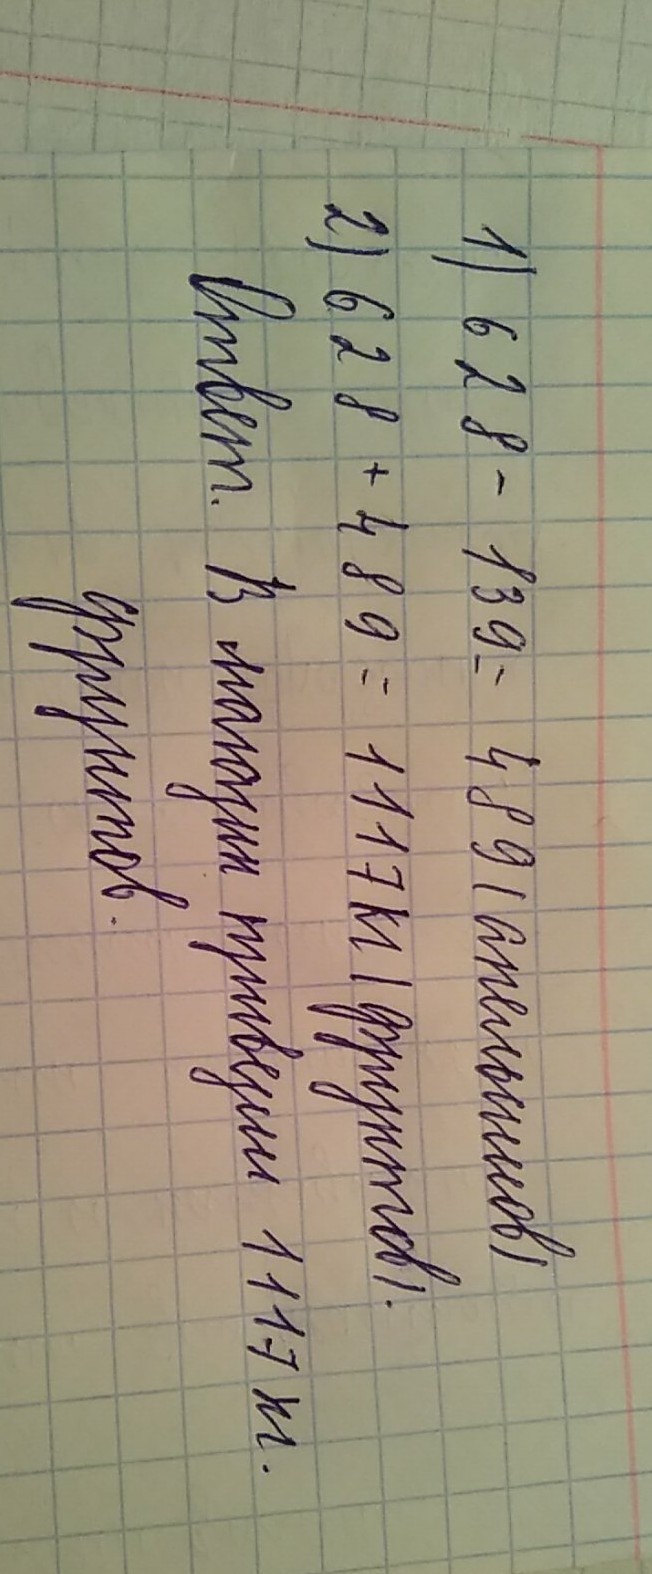 1) 628 - 139 = 489 (апельсинов)
2) 628 + 489 = 1117 кг (фруктов).
Ответ. В магазин привезли 1117 кг.
фруктов.